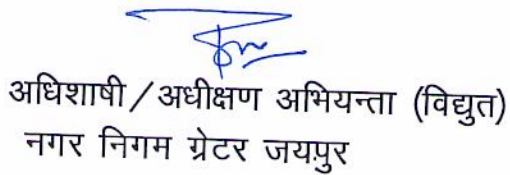 अधिशाषी/अधीक्षण अभियन्ता (विद्युत)
नगर निगम ग्रेटर जयपुर